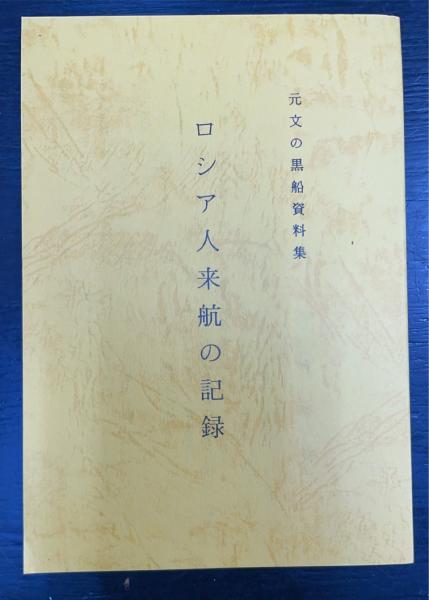 元文の黒船資料集
ロシア人来航の記録